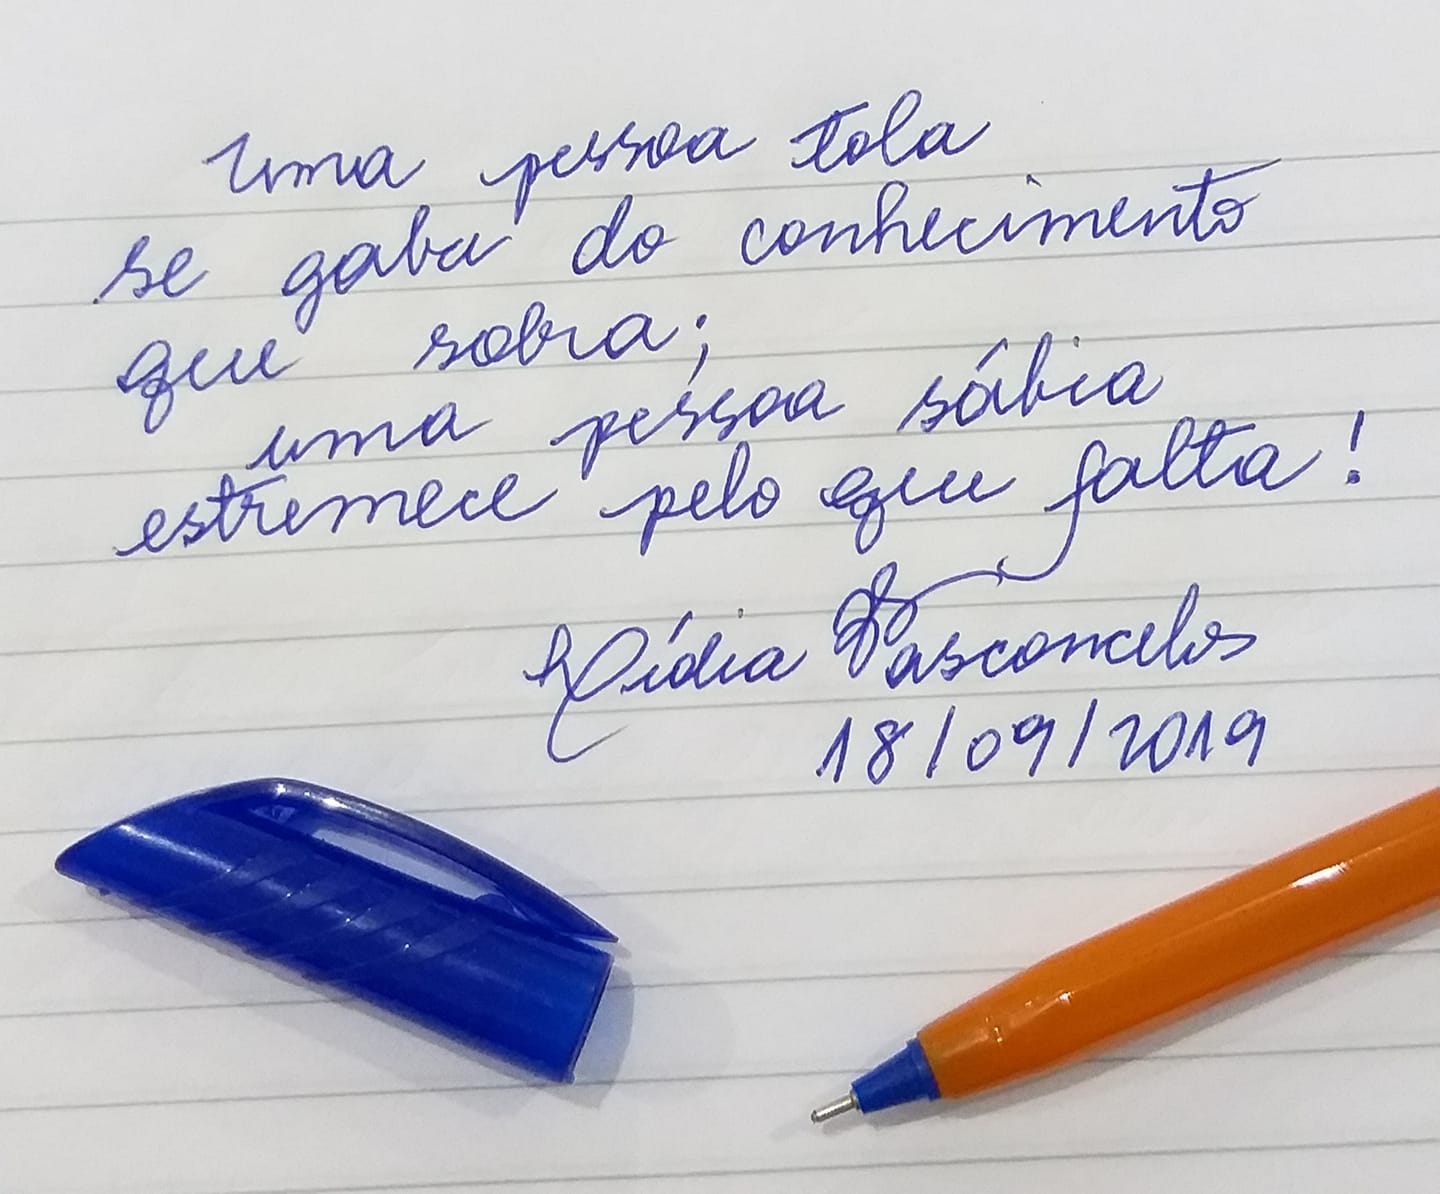 Uma pessoa tola
se gaba do conhecimento
que sobra;
uma pessoa sábia
estremece pelo que falta!
Lídia Vasconcelos
18/09/2019